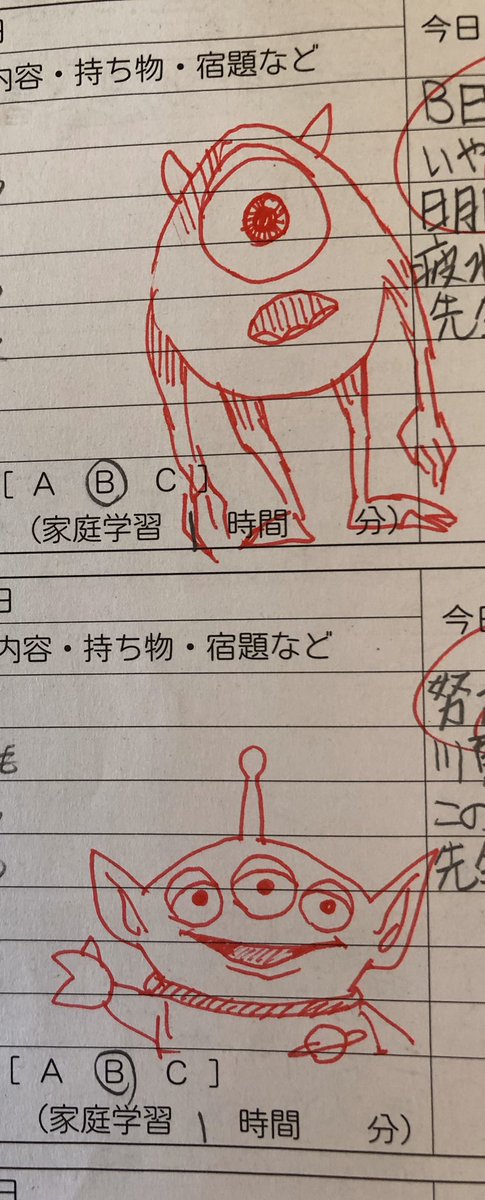 日
内容・持ち物・宿題など
今日
B日
いや
日月
疲れ
先生
[ A B C ]
(家庭学習 1 時間 分)
日
内容・持ち物・宿題など
今日
努力
も
この
先生
[ A B C ]
(家庭学習 1 時間 分)
日